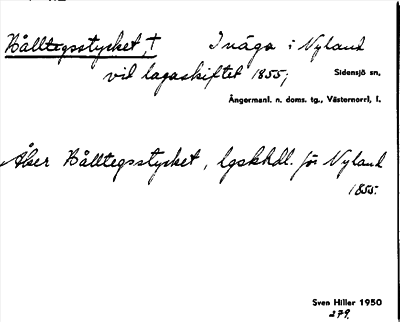 Bålltegsstycket, † Inäga i Nyland
vid lagaskiftet 1855;
Sidensjö sn,
Ångermanl. n. doms. tg., Västernorrl. l.
Åker Bålltegsstycket, lgskhdl. för Nyland
1855.
Sven Hiller 1950
279.